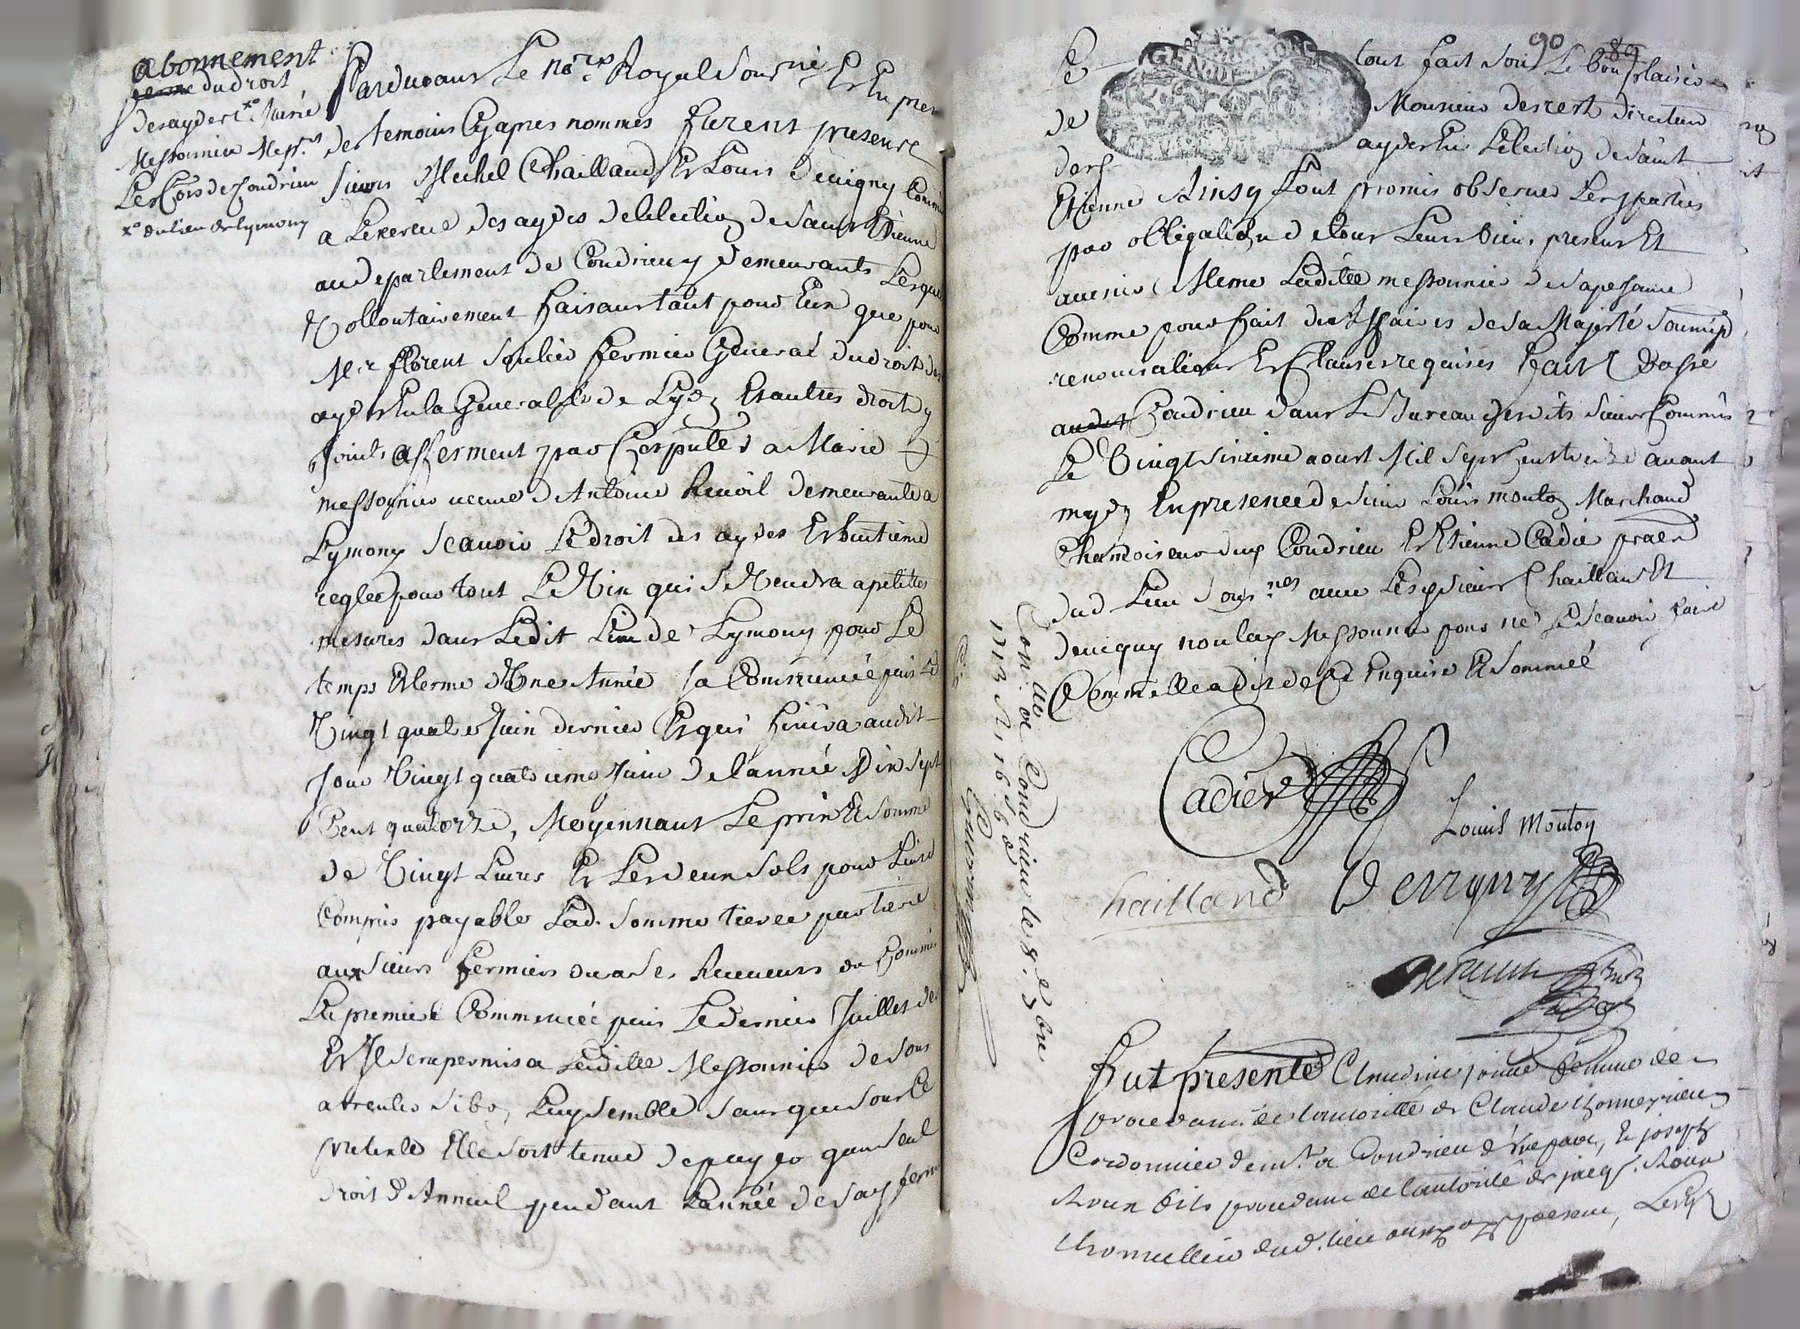 abonnement
ferme du droit
des aydes Marie
Messonnier
Les Coïs de Condrieu
du lieu de Lymony
Pardevant Le no.re Royal Sous.né Et En pnce
des temoins Cy apres nommés furent presents
sieurs Michel Chailland Et Louis Devigny Commis
a Lexercice des aydes de lelection de Saint Etienne
au departement de Condrieu y demeurants Lesquels
Vollontairement faisant tant pour Eux que pour
Me florent Soulier fermier General du droit des
aydes En la Generalité de Lyon Et autres droits y
joints afferment par Ces putes a Marie
messonnier veuve d'Antoine Revoil demeurante a
Lymony Scavoir Le droit des aydes Et huitieme
reglé pour tout Le Vin qui se Vendra a petittes
mesures dans Ledit Lieu de Lymony pour Le
temps Et terme d'Une Année ja Commencée puis Le
Vingt quatre Juin dernier Et qui finira audit
Jour Vingt quatrieme Juin de l'année Dix Sept
Cent quatorze, Moyennant Le prix Et Somme
de Vingt Livres Et Les deux Sols pour Livre
Compris payable Lad. Somme tierce par tierce
aux sieurs fermiers ou a Ses Receveurs ou Commis
La premiere Commencée puis Le dernier Juillet der
Et Il Sera permis a Laditte Messonnier de Sous
Ensemble Sans que Sous Ce
pretexte Elle Soit tenue de payer qu'un Seul
droit d'Annuel pendant L'année de Sa ferme
90 89
GEN DE LYON
Le tout fait Sous Le bon plaisir
de Monsieur Descrest directeur
des aydes En Lelection de Saint
Etienne Ainsy L'ont promis observer Les parties
par obligation de tous Leurs biens presents Et
avenir Meme Laditte messonnier de Sa personne
Comme pour fait des Affaires de Sa Majesté Soumis
renonciations Et Clauses requises fait Et Passé
audit Condrieu dans Le Bureau desdits Sieurs Commis
Le Vingt Sixieme aoust Mil Sept Cent treize avant
midy En presence de Sieur Louis mouton Marchand
Chamoiseur dud Condrieu Et Etienne Cadier praen
dud Lieu Sous.nés avec Lesd Sieurs Chailland Et
Devigny non lad Messonnier pour ne Le Scavoir faire
Comme Elle a Dit de Ce Enquise Et Sommée
Con.lle a Condrieu le 8e 7bre
1713
Cadier
Louis Mouton
Chailland Devigny
fut presente Claudine femme de
procedante de l'autorité de Claude
Cordonnier dem.t a Condrieu d'Une part, Et joseph
Roux fils procedant de l'autorité de jacqs. Roux
dud. lieu d'autre part, Lesqls